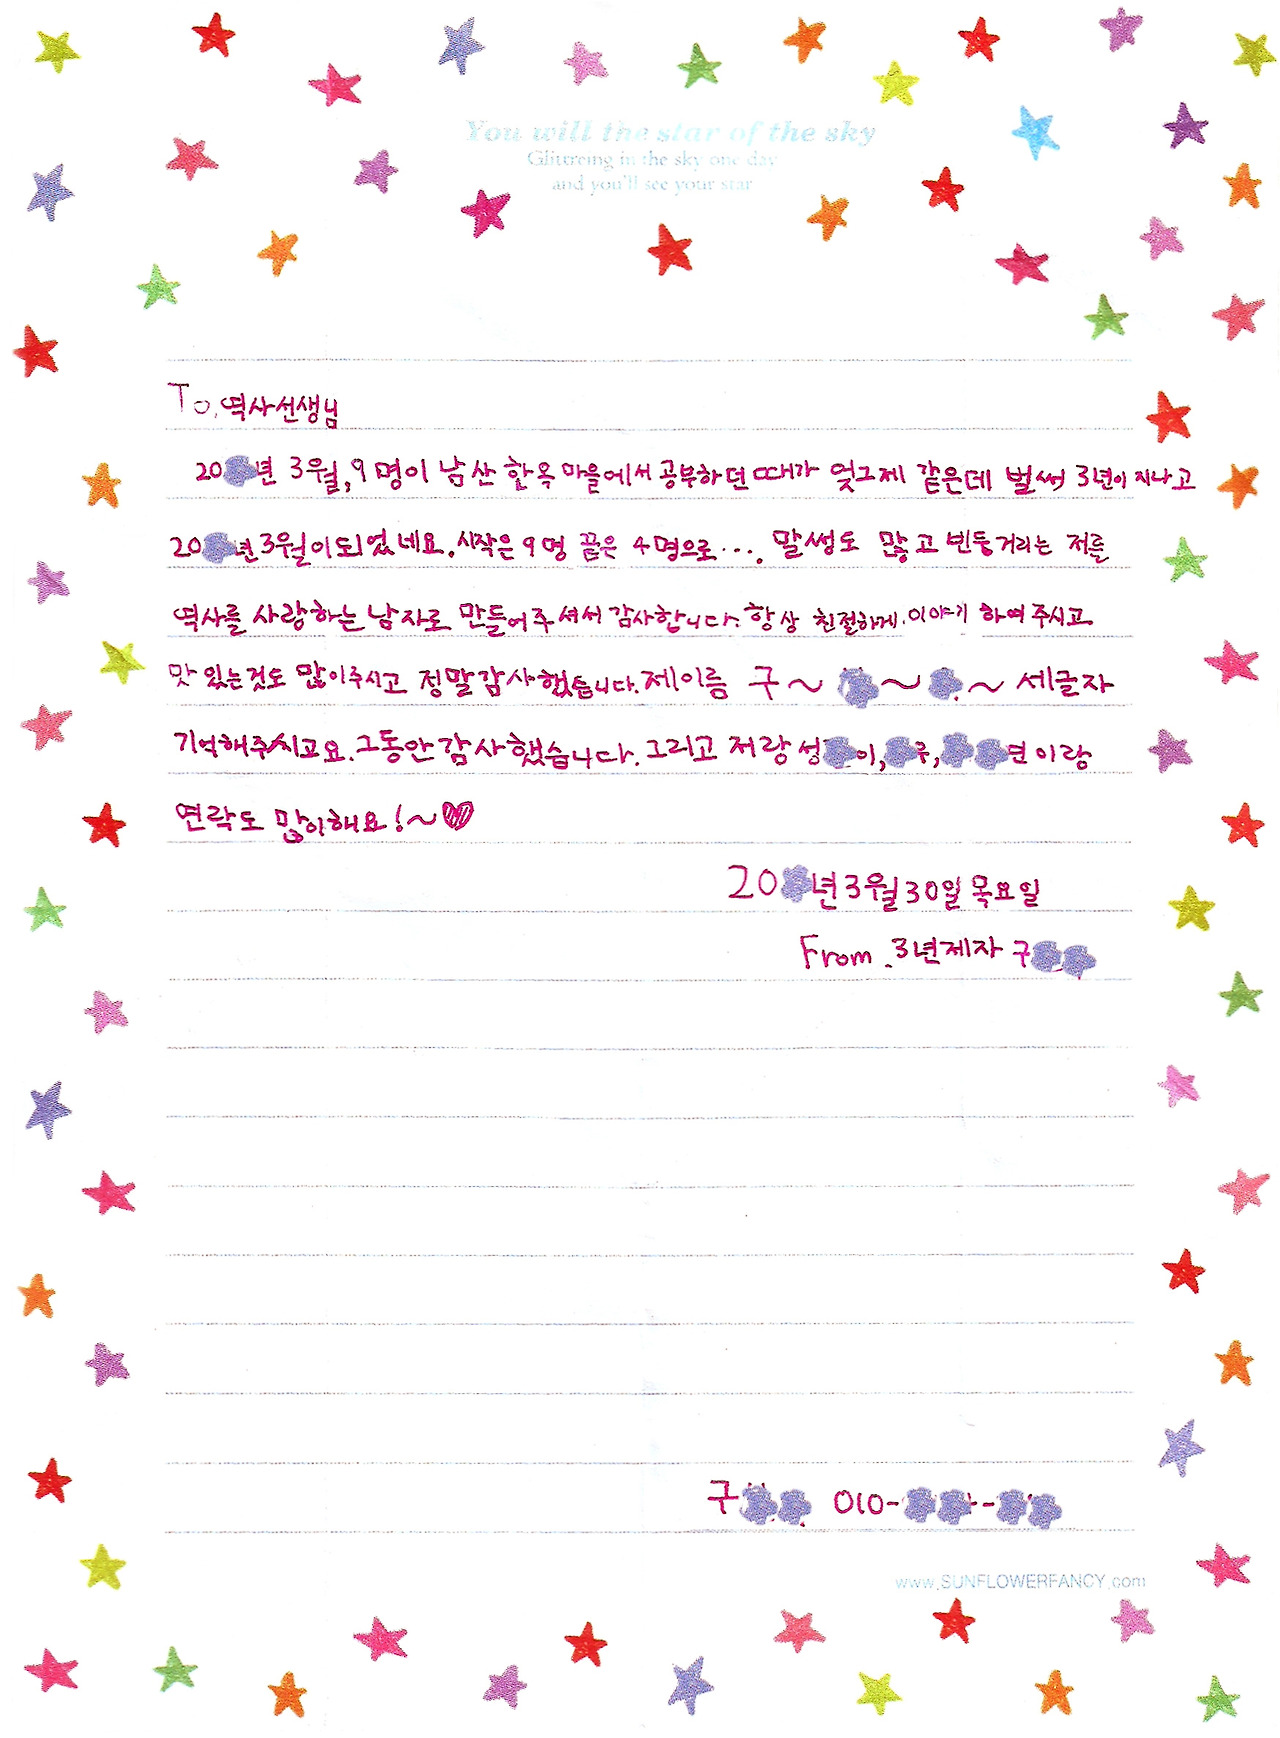 You will the star of the sky
Glittreing in the sky one day
and you'll see your star
To. 역사선생님
20 년 3월, 9명이 남산 한옥 마을에서 공부하던 때가 엊그제 같은데 벌써 3년이 지나고
20 년 3월이 되었네요. 시작은 9명 끝은 4명으로.... 말썽도 많고 빈둥거리는 저를
역사를 사랑하는 남자로 만들어주셔서 감사합니다. 항상 친절하게 이야기 하여 주시고
맛있는것도 많이주시고 정말감사했습니다. 제이름 구~ ~ ~ 세글자
기억해주시고요. 그동안감사했습니다. 그리고 저랑 성 이, 구, 년이랑
연락도 많이해요!~♥
20 년 3월 30일 목요일
From. 3년제자 구
구 010- -
www.SUNFLOWERFANCY.com